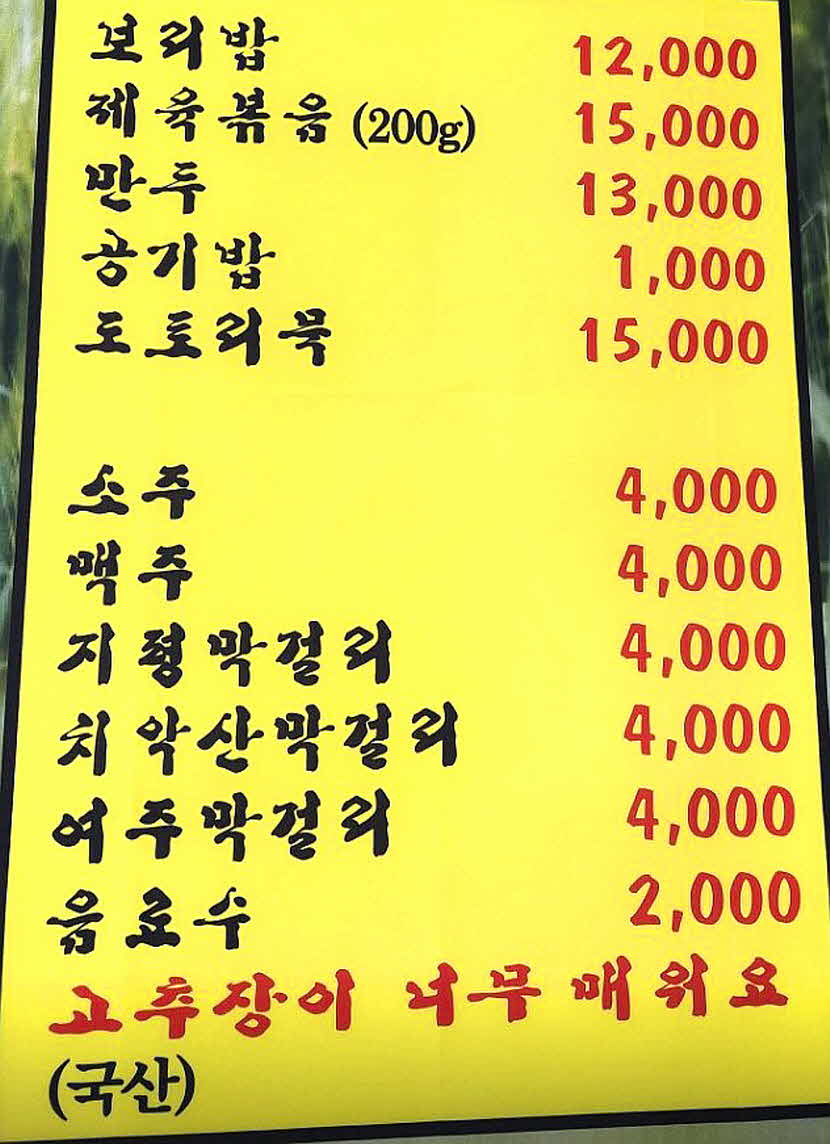 보리밥 12,000
제육볶음 (200g) 15,000
만두 13,000
공기밥 1,000
도토리묵 15,000
소주 4,000
맥주 4,000
지평막걸리 4,000
치악산막걸리 4,000
여주막걸리 4,000
음료수 2,000
고추장이 너무 매워요
(국산)